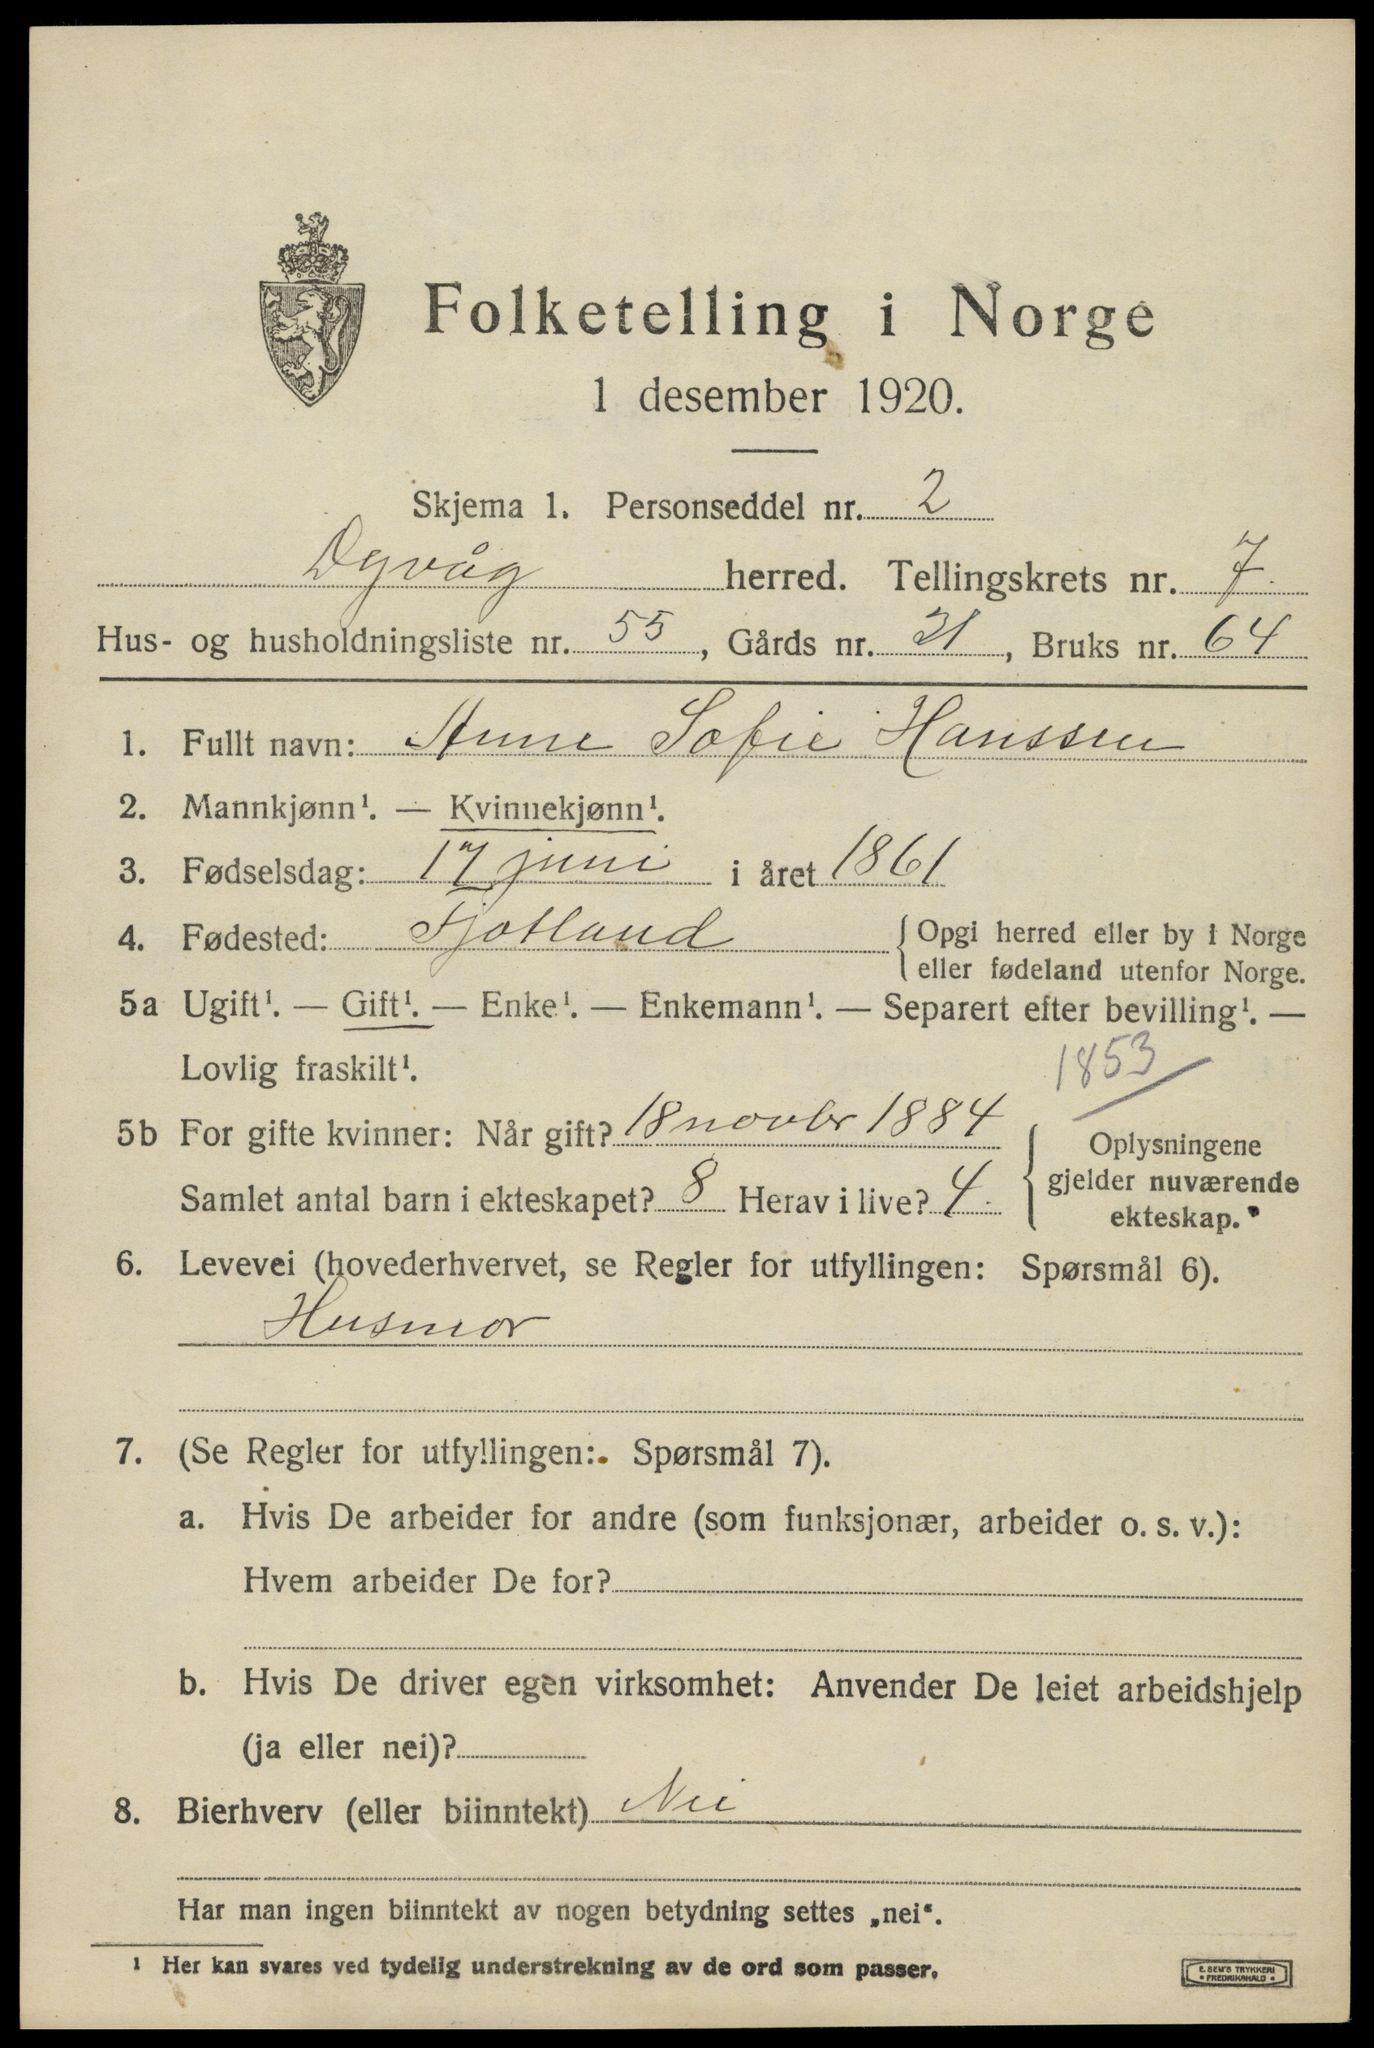 Folketelling i Norge
1 desember 1920.
Skjema 1. Personseddel nr. 2
Dyvåg herred. Tellingskrets nr. 7.
Hus- og husholdningsliste nr. 55, Gårds nr. 21, Bruks nr. 64
1. Fullt navn: Anne Sofie Hanssen
2. Mannkjønn¹. — Kvinnekjønn¹.
3. Fødselsdag: 17 juni i året 1861
4. Fødested: Fjotland { Opgi herred eller by i Norge
eller fødeland utenfor Norge.
5a Ugift¹. — Gift¹. — Enke¹. — Enkemann¹. — Separert efter bevilling¹. —
Lovlig fraskilt¹.
1853
5b For gifte kvinner: Når gift? 18 novbr 1884
Samlet antal barn i ekteskapet? 8 Herav i live? 4.
{ Oplysningene
gjelder nuværende
ekteskap.
6. Levevei (hovederhvervet, se Regler for utfyllingen: Spørsmål 6).
Husmor
7. (Se Regler for utfyllingen: Spørsmål 7).
a. Hvis De arbeider for andre (som funksjonær, arbeider o. s. v.):
Hvem arbeider De for?
b. Hvis De driver egen virksomhet: Anvender De leiet arbeidshjelp
(ja eller nei)?
8. Bierhverv (eller biinntekt) Nei
Har man ingen biinntekt av nogen betydning settes „nei“.
¹ Her kan svares ved tydelig understrekning av de ord som passer.
E. SEM'S TRYKKERI
• FREDRIKSHALD •